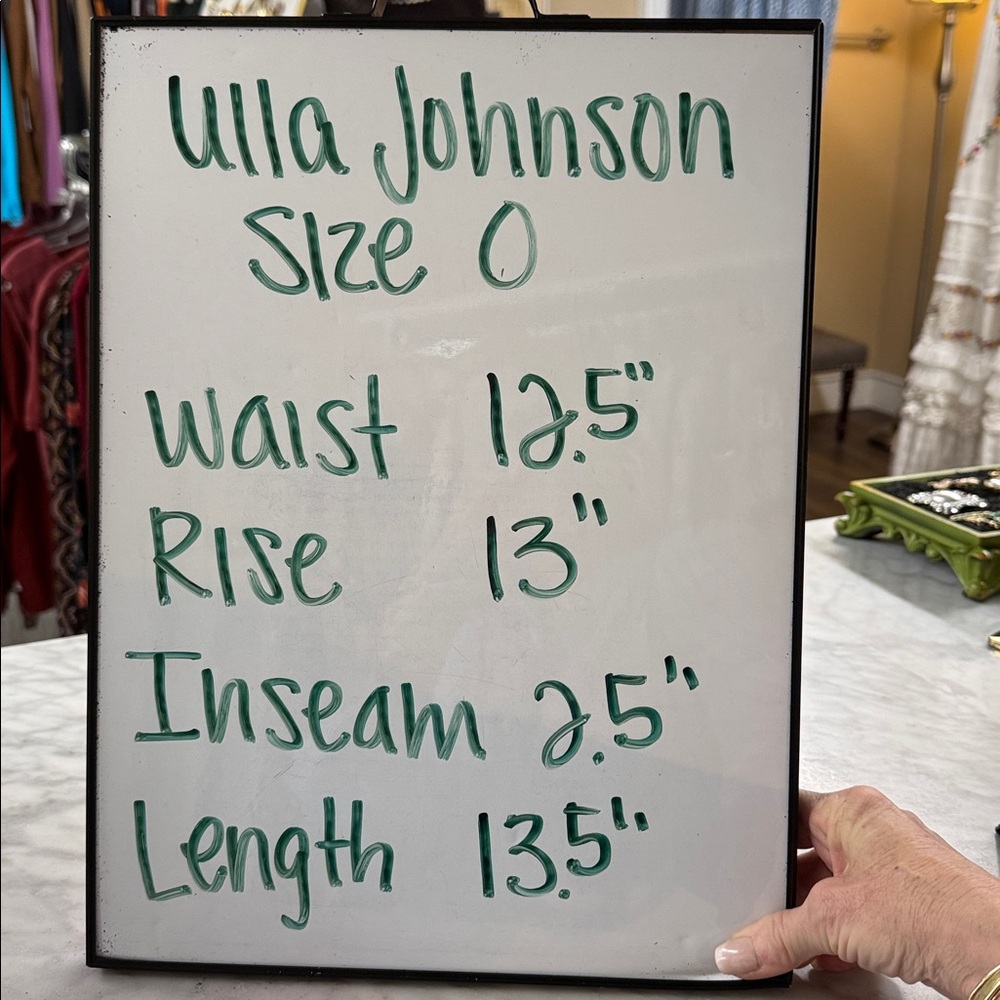 Ulla Johnson
Size 0
Waist 12.5"
Rise 13"
Inseam 2.5"
Length 13.5"